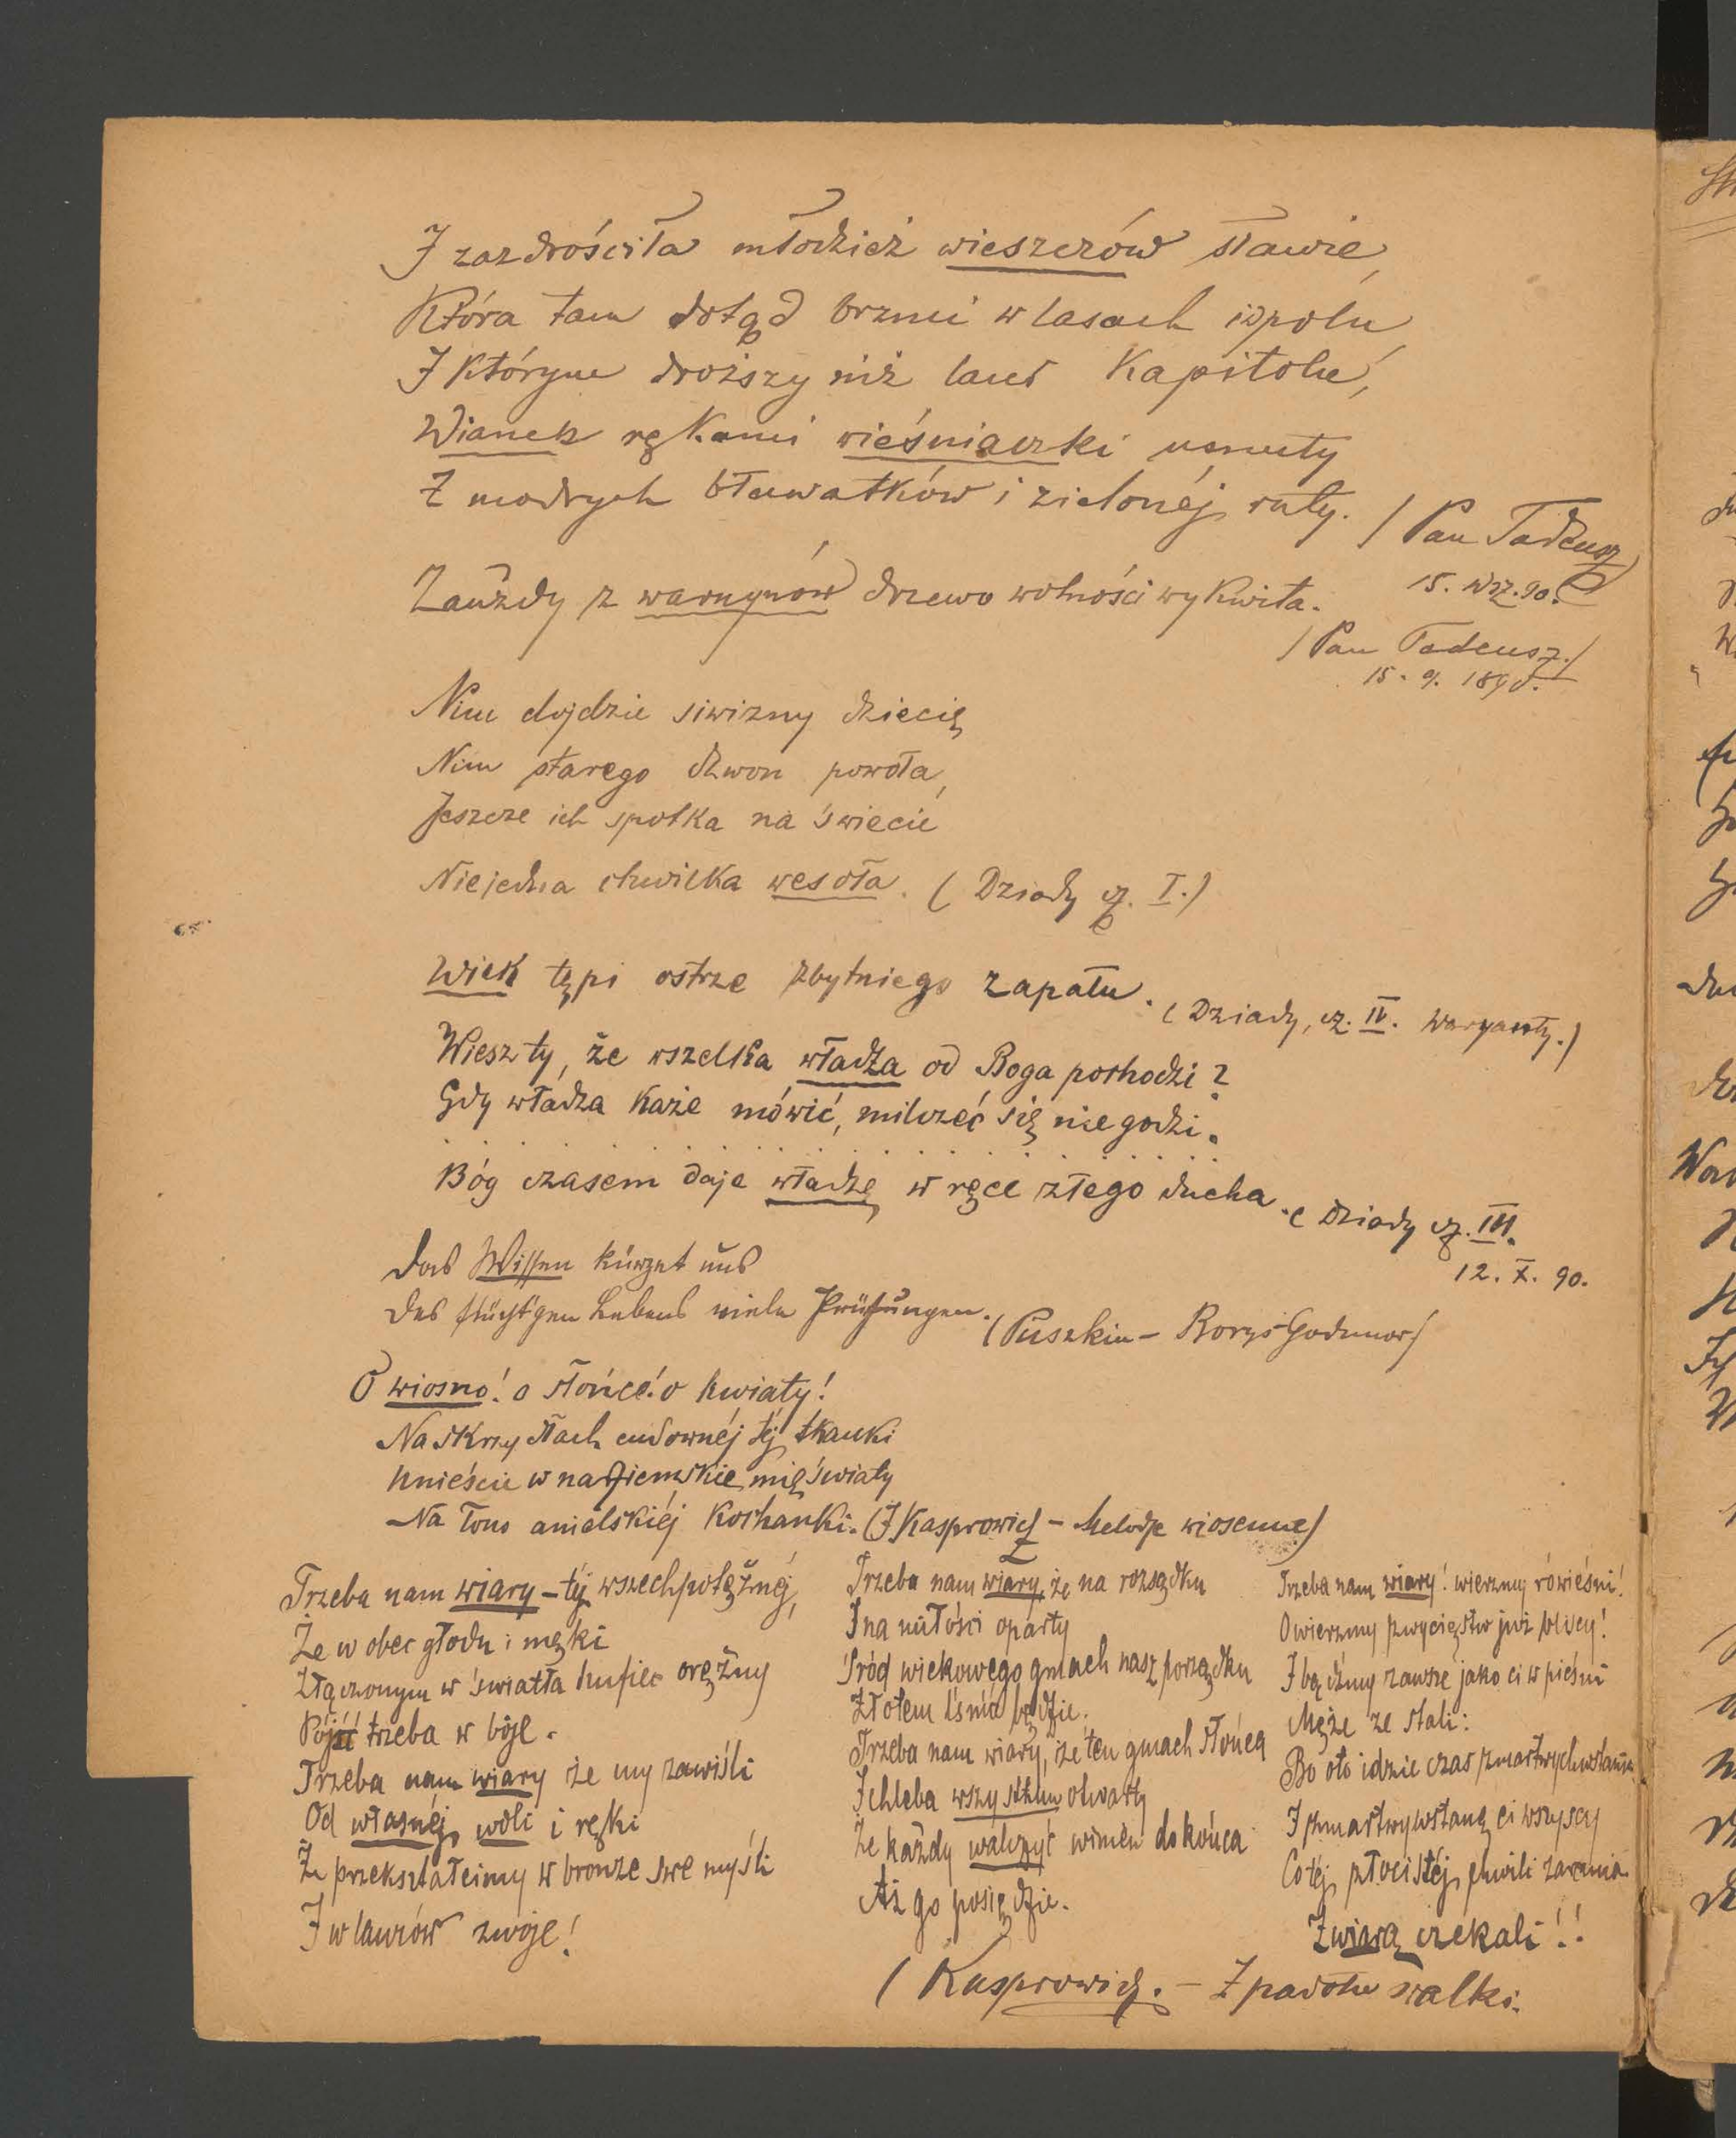 I zazdrościła młodzież wieszczów sławie,
Która tam dotąd brzmi w lasach i w polu,
I którym droższy niż laur Kapitolu,
Wianek rękami wieśniaczki usnuty
Z modrych bławatków i zielonéj ruty.
/ Pan Tadeusz
15. wrz. 90.
Zawżdy z wawrzynów drzewo wolności wykwita.
/ Pan Tadeusz./
15. 9. 1890.
Nim dojdzie siwizny dziecię
Nim starego dzwon powoła,
Jeszcze ich spotka na świecie
Niejedna chwilka wesoła. ( Dziady cz. I.)
Wiek tępi ostrze zbytniego zapału. ( Dziady, cz. IV. Waryanty.)
Wiesz ty, że wszelka władza od Boga pochodzi?
Gdy władza każe mówić, milczeć się nie godzi.
. . . . . . . . . . . . . . . .
Bóg czasem daje władzę w ręce złego ducha. ( Dziady cz. III.
12. X. 90.
Das Wissen kürzet uns
Des flücht'gen Lebens viele Prüfungen. (Puszkin – Borys Godunow)
O wiosno! o słońce! o kwiaty!
Na skrzydłach cudownéj téj tkanki
Unieście w nadziemskie mię światy
Na łono anielskiéj kochanki. (J Kasprowicz – Melodje wiosenne)
Trzeba nam wiary – téj wszechpotężnéj,
Że w obec głodu i męki
Złączonym w światła hufiec orężny
Pójść trzeba w bóje.
Trzeba nam wiary że my zawiśli
Od własnéj woli i ręki
Że przekształcimy w bronze swe myśli
I w laurów zwoje!
Trzeba nam wiary, że na rozsądku
I na miłości oparty
Śród wiekowego gmach nasz porządku
Złotem lśnić będzie.
Trzeba nam wiary, że ten gmach słońca
I chleba wszystkim otwarty
Że każdy walczyć winien do końca
Aż go posiędzie.
Trzeba nam wiary! wierzmy rówieśni!
O wierzmy zwycięstw już bliscy!
I bądźmy zawsze jako ci w pieśni
Męże ze stali:
Bo oto idzie czas zmartwychwstania
I zmartwywstaną ci wszyscy
Co téj złocistéj chwili zarania
Z wiarą czekali!!
( Kasprowicz. – Z padołu walki.